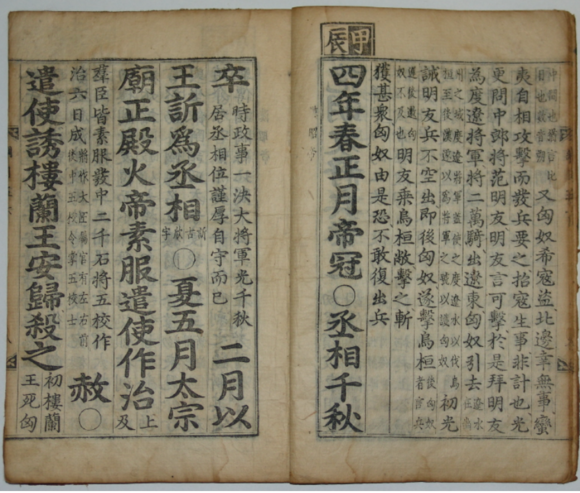 甲辰
又匈奴希寇盜北邊幸無事蠻
夷自相攻擊而發兵要之招寇生事非計也光
更問中郎將范明友明友言可擊於是拜明友
爲度遼將軍將二萬騎出遼東匈奴引去
初光
誡明友兵不空出即後匈奴遂擊烏桓
明友乘烏桓敝擊之斬
獲甚衆匈奴由是恐不敢復出兵
四年春正月帝冠○丞相千秋
卒 時政事一決大將軍光千秋
居丞相位謹厚自守而已 二月以
王訢爲丞相 訢古欣字 ○夏五月太宗
廟正殿火帝素服遣使作治 上及
羣臣皆素服發中二千石將五校作
治六日成
赦○
遣使誘樓蘭王安歸殺之 初樓蘭
王死匈